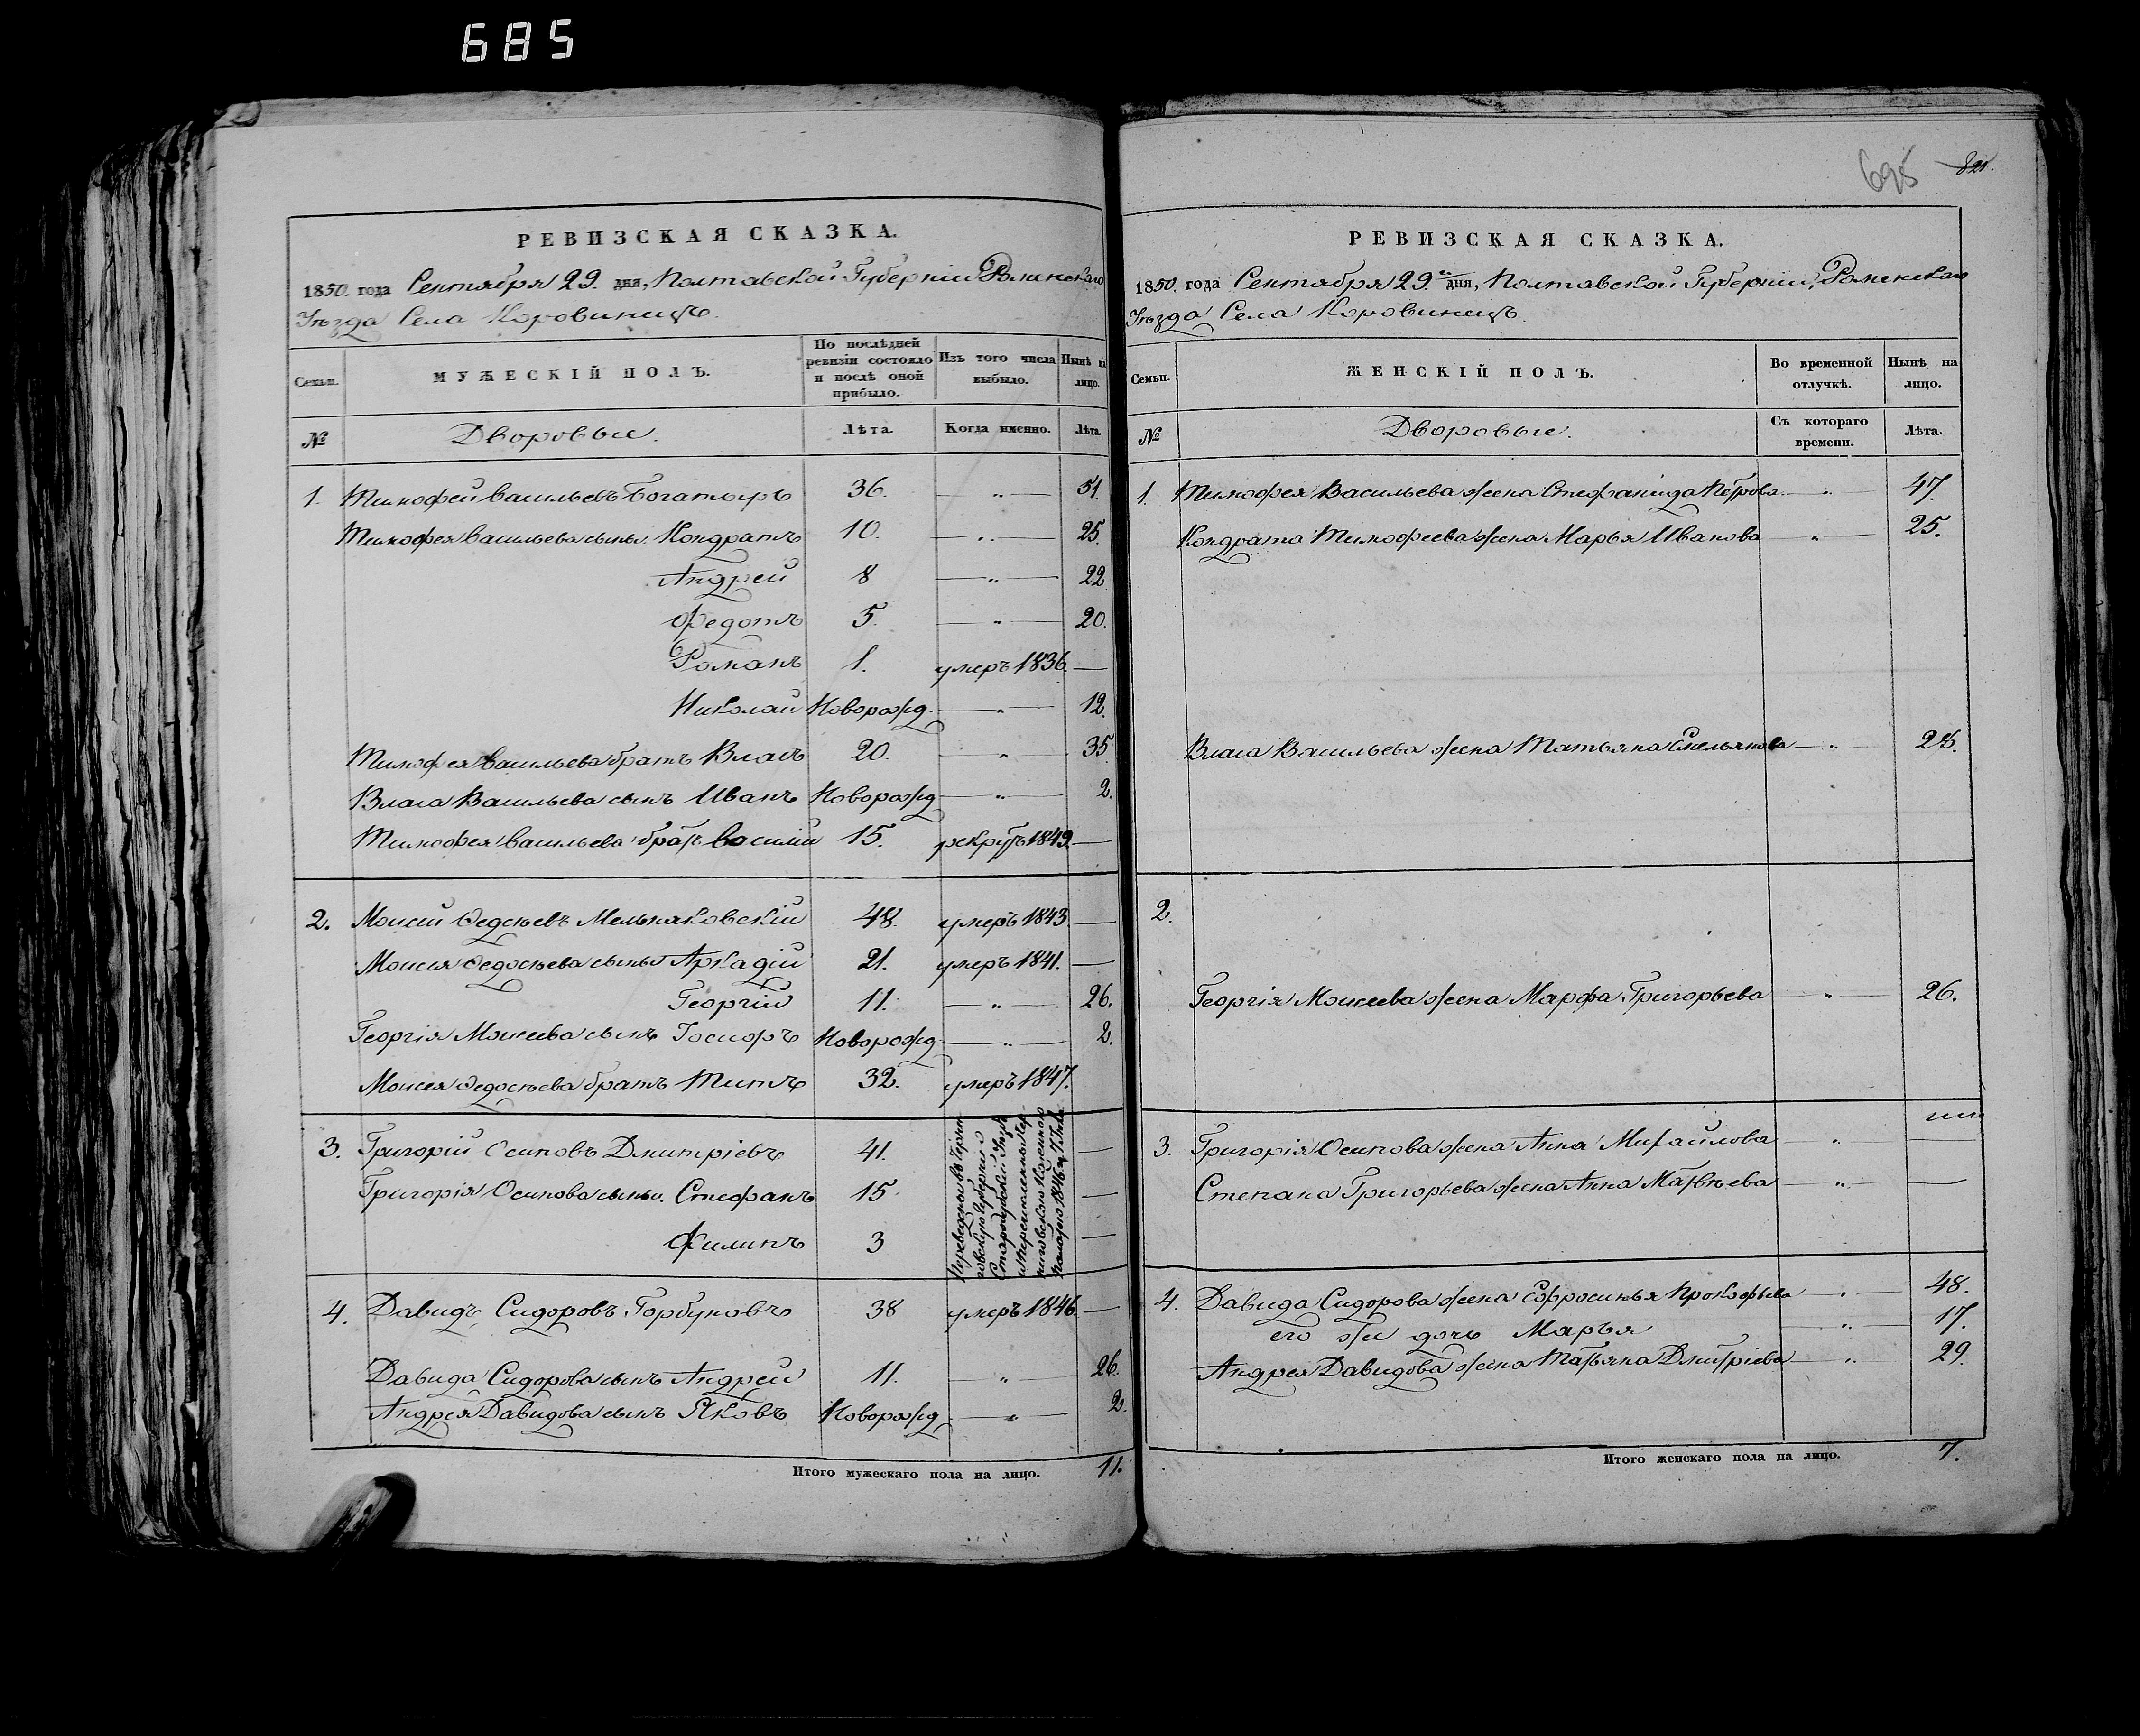 685
РЕВИЗСКАЯ СКАЗКА.
1850. года Сентября 29. дня, Полтавской Губерніи Роменскаго
Уѣзда Села Коровинецъ.
Семьи.
МУЖЕСКІЙ ПОЛЪ.
По послѣдней ревизіи состояло и послѣ оной прибыло.
Изъ того числа выбыло.
Нынѣ на лицо.
№ Дворовые. Лѣта. Когда именно. Лѣта.
1. Тимофей Васильевъ Богатыръ 36. — „ — 51.
Тимофея Васильева сыны. Кондратъ 10. — „ — 25.
Андрей 8 — „ — 22
Федотъ 5. — „ — 20.
Романъ 1. умеръ 1836. —
Николай Новорожд. — „ — 12.
Тимофея Васильева братъ Власъ 20. — „ — 35
Власа Васильева сынъ Иванъ Новорожд — „ — 2.
Тимофея Васильева братъ Василій 15. рекрутъ 1849. —
2. Моисей Федосѣевъ Мельниковскій 48. умеръ 1843. —
Моисея Федосѣева сыны Аркадій 21. умеръ 1841. —
Георгій 11. — „ — 26.
Георгія Моисеева сынъ Новорожд — „ — 2.
Моисея Федосѣева братъ Титъ 32. умеръ 1847.
3. Григорій Осиповъ Дмитріевъ 41. —
Григорія Осипова сыны. Стефанъ 15. —
Филипъ 3 —
Переведены въ Черниговскую Губернію Стародубскій Уѣздъ
4. Давидъ Сидоровъ Горбуновъ 38 умеръ 1846. —
Давида Сидорова сынъ Андрей 11. — „ — 26.
Андрея Давидова сынъ Яковъ Новорожд — „ — 2.
Итого мужескаго пола на лицо. 11.
695 821.
РЕВИЗСКАЯ СКАЗКА.
1850. года Сентября 29. дня, Полтавской Губерніи, Роменскаго
Уѣзда Села Коровинецъ.
Семьи.
ЖЕНСКІЙ ПОЛЪ.
Во временной отлучкѣ.
Нынѣ на лицо.
№ Дворовые. Съ котораго времени. Лѣта.
1. Тимофея Васильева жена Стефанида Петрова — „ — 47.
Кондрата Тимофеева жена Марья Иванова — „ — 25.
Власа Васильева жена Татьяна Емельянова — „ —
2.
Георгія Моисеева жена Марфа Григорьева — „ — 26.
3. Григорія Осипова жена Анна Михайлова — „ — —
Степана Григорьева жена Анна Матвѣева — „ — —
4. Давида Сидорова жена Ефросинья Прокофьева — „ — 48.
его же дочь Марья — „ — 17.
Андрея Давидова жена Татьяна Дмитріева — „ — 29.
Итого женскаго пола на лицо. 7.